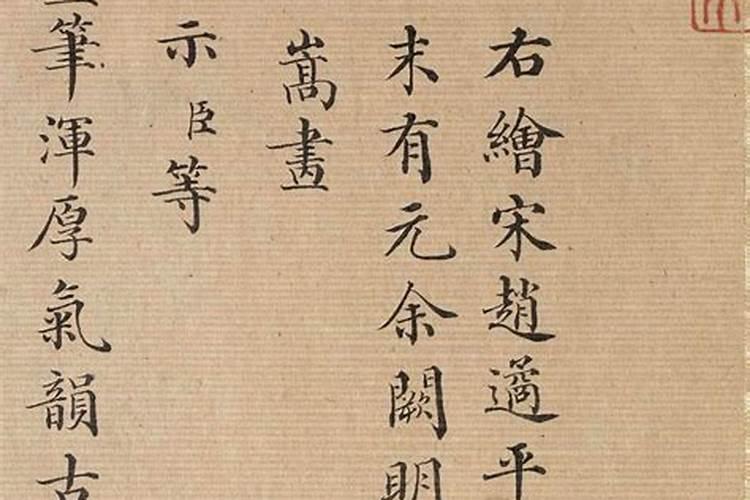 右繪宋趙邁平
末有元余闕明
嵩畫
示臣等
筆渾厚氣韻古